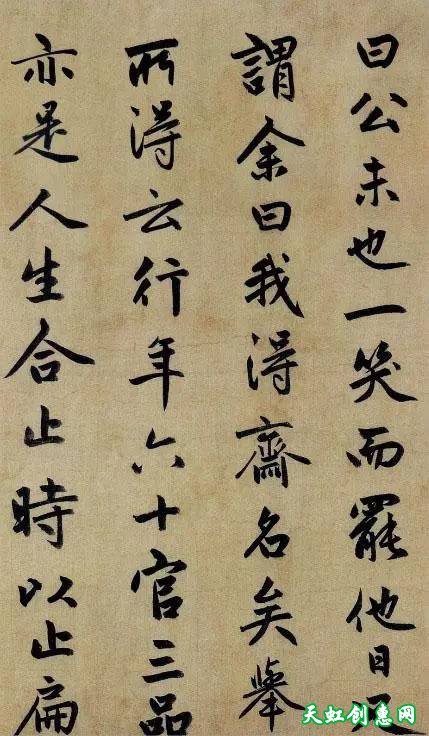 曰公未也一笑而罷他日又
謂余曰我得齋名矣舉
所得云行年六十官三品
亦是人生合止時以止扁
天虹创惠网